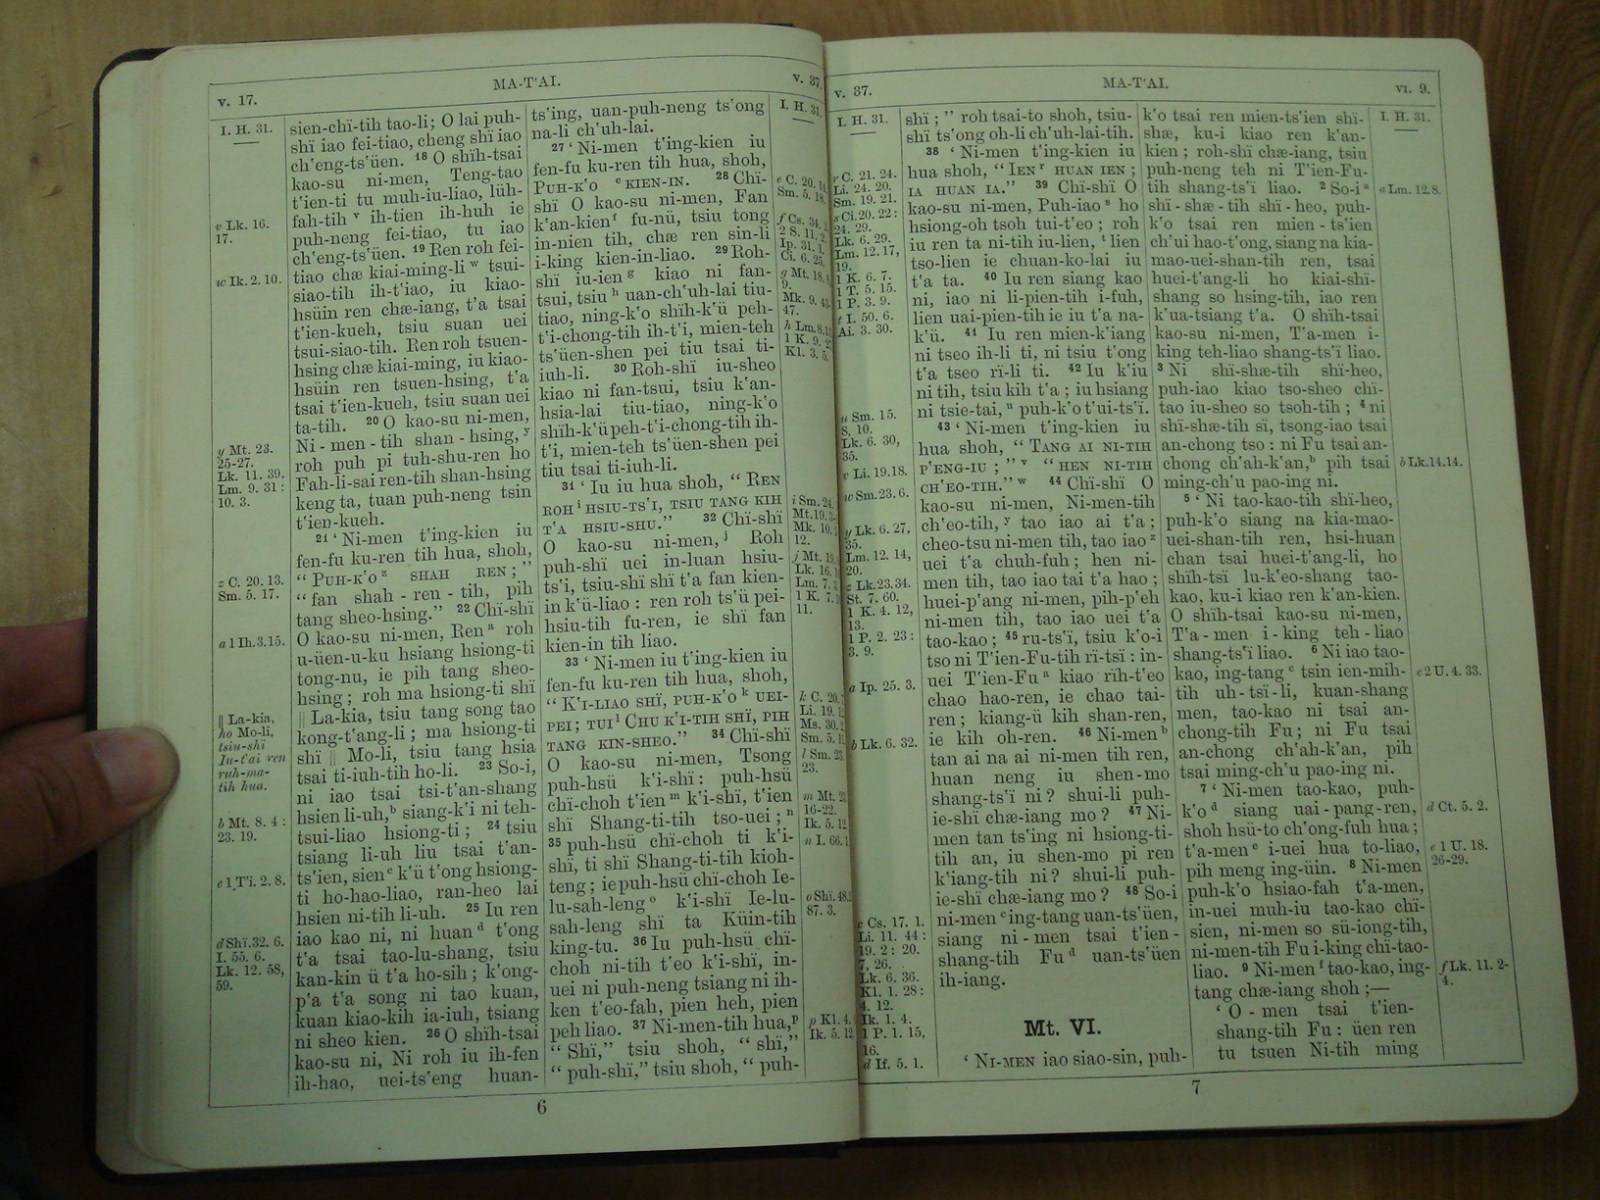 v. 17.
MA-T'AI.
v. 37
I. H. 31.
v Lk. 16.
17.
w Ik. 2. 10.
y Mt. 23.
25-27.
Lk. 11. 39.
Lm. 9. 31:
10. 3.
z C. 20. 13.
Sm. 5. 17.
a 1 Ih. 3. 15.
|| La-kia,
ho Mo-li,
tsiu-shï
Iu-t'ai ren
ruh-ma-
tih hua.
b Mt. 8. 4:
23. 19.
c 1 T'i. 2. 8.
d Shï. 32. 6.
I. 55. 6.
Lk. 12. 58,
59.
sien-chï-tih tao-li; O lai puh-
shï iao fei-tiao, cheng shï iao
ch'eng-ts'üen. 18 O shïh-tsai
kao-su ni-men, Teng-tao
t'ien-ti tu muh-iu-liao, lüh-
fah-tih v ih-tien ih-huh ie
puh-neng fei-tiao, tu iao
ch'eng-ts'üen. 19 Ren roh fei-
tiao chæ kiai-ming-li w tsui-
siao-tih ih-t'iao, iu kiao-
hsüin ren chæ-iang, t'a tsai
t'ien-kueh, tsiu suan uei
tsui-siao-tih. Ren roh tsuen-
hsing chæ kiai-ming, iu kiao-
hsüin ren tsuen-hsing, t'a
tsai t'ien-kueh, tsiu suan uei
ta-tih. 20 O kao-su ni-men,
Ni-men-tih shan-hsing, y
roh puh pi tuh-shu-ren ho
Fah-li-sai ren-tih shan-hsing
keng ta, tuan puh-neng tsin
t'ien-kueh.
21 ' Ni-men t'ing-kien iu
fen-fu ku-ren tih hua, shoh,
" PUH-K'O z SHAH REN; "
" fan shah-ren-tih, pih
tang sheo-hsing." 22 Chï-shï
O kao-su ni-men, Ren a roh
u-üen-u-ku hsiang hsiong-ti
tong-nu, ie pih tang sheo-
hsing; roh ma hsiong-ti shï
|| La-kia, tsiu tang song tao
kong-t'ang-li; ma hsiong-ti
shï || Mo-li, tsiu tang hsia
tsai ti-iuh-tih ho-li. 23 So-i,
ni iao tsai tsi-t'an-shang
hsien li-uh, b siang-k'i ni teh-
tsui-liao hsiong-ti; 24 tsiu
tsiang li-uh liu tsai t'an-
ts'ien, sien c k'ü t'ong hsiong-
ti ho-hao-liao, ran-heo lai
hsien ni-tih li-uh. 25 Iu ren
iao kao ni, ni huan d t'ong
t'a tsai tao-lu-shang, tsiu
kan-kin ü t'a ho-sih; k'ong-
p'a t'a song ni tao kuan,
kuan kiao-kih ia-iuh, tsiang
ni sheo kien. 26 O shïh-tsai
kao-su ni, Ni roh iu ih-fen
ih-hao, uei-ts'eng huan-
ts'ing, uan-puh-neng ts'ong
na-li ch'uh-lai.
27 ' Ni-men t'ing-kien iu
fen-fu ku-ren tih hua, shoh,
PUH-K'O e KIEN-IN. 28 Chï-
shï O kao-su ni-men, Fan
k'an-kien f fu-nü, tsiu tong
in-nien tih, chæ ren sin-li
i-king kien-in-liao. 29 Roh-
shï iu-ien g kiao ni fan-
tsui, tsiu h uan-ch'uh-lai tiu-
tiao, ning-k'o shïh-k'ü peh-
t'i-chong-tih ih-t'i, mien-teh
ts'üen-shen pei tiu tsai ti-
iuh-li. 30 Roh-shï iu-sheo
kiao ni fan-tsui, tsiu k'an-
hsia-lai tiu-tiao, ning-k'o
shïh-k'ü peh-t'i-chong-tih ih-
t'i, mien-teh ts'üen-shen pei
tiu tsai ti-iuh-li.
31 ' Iu iu hua shoh, " REN
ROH i HSIU-TS'I, TSIU TANG KIH
T'A HSIU-SHU." 32 Chï-shï
O kao-su ni-men, j Roh
puh-shï uei in-luan hsiu-
ts'i, tsiu-shï shï t'a fan kien-
in k'ü-liao: ren roh ts'ü pei-
hsiu-tih fu-ren, ie shï fan
kien-in tih liao.
33 ' Ni-men iu t'ing-kien iu
fen-fu ku-ren tih hua, shoh,
" K'I-LIAO SHÏ, PUH-K'O k UEI-
PEI; TUI l CHU K'I-TIH SHÏ, PIH
TANG KIN-SHEO." 34 Chï-shï
O kao-su ni-men, Tsong
puh-hsü k'i-shï: puh-hsü
chï-choh t'ien m k'i-shï, t'ien
shï Shang-ti-tih tso-uei; n
35 puh-hsü chï-choh ti k'i-
shï, ti shï Shang-ti-tih kioh-
teng; ie puh-hsü chï-choh Ie-
lu-sah-leng o k'i-shï Ie-lu-
sah-leng shï ta Küin-tih
king-tu. 36 Iu puh-hsü chï-
choh ni-tih t'eo k'i-shï, in-
uei ni puh-neng tsiang ni ih-
ken t'eo-fah, pien heh, pien
peh liao. 37 Ni-men-tih hua, p
" Shï," tsiu shoh, " shï,"
" puh-shï," tsiu shoh, " puh-
I. H. 31.
e C. 20. 14
Sm. 5. 18.
Mk. 9.
47.
Mk. 10.
12.
11.
23.
16-22.
Ik. 5. 12
n I. 66. 1
87. 3.
p K1. 4.
Ik. 5. 12
6
v. 37.
MA-T'AI.
VI. 9.
I. H. 31.
r C. 21. 24.
Li. 24. 20.
Sm. 19. 21.
s Ci. 20. 22:
24. 29.
Lk. 6. 29.
Lm. 12. 17,
19.
1 K. 6. 7.
1 T. 5. 15.
1 P. 3. 9.
t I. 50. 6.
Ai. 3. 30.
u Sm. 15.
8, 10.
Lk. 6. 30,
35.
v Li. 19. 18.
w Sm. 23. 6.
y Lk. 6. 27,
35.
Lm. 12. 14,
20.
z Lk. 23. 34.
St. 7. 60.
1 K. 4. 12,
13.
1 P. 2. 23:
3. 9.
a Ip. 25. 3.
b Lk. 6. 32.
c Cs. 17. 1.
Li. 11. 44:
19. 2: 20.
7, 26.
Lk. 6. 36.
K1. 1. 28:
4. 12.
Ik. 1. 4.
1 P. 1. 15,
16.
d If. 5. 1.
shï; " roh tsai-to shoh, tsiu-
shï ts'ong oh-li ch'uh-lai-tih.
38 ' Ni-men t'ing-kien iu
hua shoh, " IEN r HUAN IEN;
IA HUAN IA." 39 Chï-shï O
kao-su ni-men, Puh-iao s ho
hsiong-oh tsoh tui-t'eo; roh
iu ren ta ni-tih iu-lien, t lien
tso-lien ie chuan-ko-lai iu
t'a ta. 40 Iu ren siang kao
ni, iao ni li-pien-tih i-fuh,
lien uai-pien-tih ie iu t'a na-
k'ü. 41 Iu ren mien-k'iang
ni tseo ih-li ti, ni tsiu t'ong
t'a tseo rï-li ti. 42 Iu k'iu
ni tih, tsiu kih t'a; iu hsiang
ni tsie-tai, u puh-k'o t'ui-ts'ï.
43 ' Ni-men t'ing-kien iu
hua shoh, " TANG AI NI-TIH
P'ENG-IU; " v " HEN NI-TIH
CH'EO-TIH." w 44 Chï-shï O
kao-su ni-men, Ni-men-tih
ch'eo-tih, y tao iao ai t'a;
cheo-tsu ni-men tih, tao iao z
uei t'a chuh-fuh; hen ni-
men tih, tao iao tai t'a hao;
huei-p'ang ni-men, pih-p'eh
ni-men tih, tao iao uei t'a
tao-kao; 45 ru-ts'ï, tsiu k'o-i
tso ni T'ien-Fu-tih rï-tsï: in-
uei T'ien-Fu a kiao rïh-t'eo
chao hao-ren, ie chao tai-
ren; kiang-ü kih shan-ren,
ie kih oh-ren. 46 Ni-men b
tan ai na ai ni-men tih ren,
huan neng iu shen-mo
shang-ts'ï ni? shui-li puh-
ie-shï chæ-iang mo? 47 Ni-
men tan ts'ing ni hsiong-ti-
tih an, iu shen-mo pi ren
k'iang-tih ni? shui-li puh-
ie-shï chæ-iang mo? 48 So-i
ni-men c ing-tang uan-ts'üen,
siang ni-men tsai t'ien-
shang-tih Fu d uan-ts'üen
ih-iang.
Mt. VI.
' NI-MEN iao siao-sin, puh-
k'o tsai ren mien-ts'ien shï-
shæ, ku-i kiao ren k'an-
kien; roh-shï chæ-iang, tsiu
puh-neng teh ni T'ien-Fu-
tih shang-ts'ï liao. 2 So-i a
shï-shæ-tih shï-heo, puh-
k'o tsai ren mien-ts'ien
ch'ui hao-t'ong, siang na kia-
mao-uei-shan-tih ren, tsai
huei-t'ang-li ho kiai-shï-
shang so hsing-tih, iao ren
k'ua-tsiang t'a. O shïh-tsai
kao-su ni-men, T'a-men i-
king teh-liao shang-ts'ï liao.
3 Ni shï-shæ-tih shï-heo,
puh-iao kiao tso-sheo chï-
tao iu-sheo so tsoh-tih; 4 ni
shï-shæ-tih sï, tsong-iao tsai
an-chong tso: ni Fu tsai an-
chong ch'ah-k'an, b pih tsai
ming-ch'u pao-ing ni.
5 ' Ni tao-kao-tih shï-heo,
puh-k'o siang na kia-mao-
uei-shan-tih ren, hsi-huan
chan tsai huei-t'ang-li, ho
shïh-tsï lu-k'eo-shang tao-
kao, ku-i kiao ren k'an-kien.
O shïh-tsai kao-su ni-men,
T'a-men i-king teh-liao
shang-ts'ï liao. 6 Ni iao tao-
kao, ing-tang c tsin ien-mih-
tih uh-tsï-li, kuan-shang
men, tao-kao ni tsai an-
chong-tih Fu; ni Fu tsai
an-chong ch'ah-k'an, pih
tsai ming-ch'u pao-ing ni.
7 ' Ni-men tao-kao, puh-
k'o d siang uai-pang-ren,
shoh hsü-to ch'ong-fuh hua;
t'a-men e i-uei hua to-liao,
pih meng ing-üin. 8 Ni-men
puh-k'o hsiao-fah t'a-men,
in-uei muh-iu tao-kao chï-
sien, ni-men so sü-iong-tih,
ni-men-tih Fu i-king chï-tao-
liao. 9 Ni-men f tao-kao, ing-
tang chæ-iang shoh;—
' O-men tsai t'ien-
shang-tih Fu: üen ren
tu tsuen Ni-tih ming
I. H. 31.
a Lm. 12. 8.
b Lk. 14. 14.
c 2 U. 4. 33.
d Ct. 5. 2.
e 1 U. 18.
26-29.
f Lk. 11. 2-
4.
7